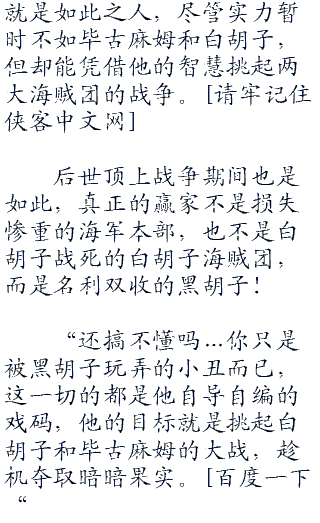 就是如此之人，尽管实力暂
时不如毕古麻姆和白胡子，
但却能凭借他的智慧挑起两
大海贼团的战争。[请牢记住
侠客中文网]
后世顶上战争期间也是
如此，真正的赢家不是损失
惨重的海军本部，也不是白
胡子战死的白胡子海贼团，
而是名利双收的黑胡子！
“还搞不懂吗...你只是
被黑胡子玩弄的小丑而已，
这一切的都是他自导自编的
戏码，他的目标就是挑起白
胡子和毕古麻姆的大战，趁
机夺取暗暗果实。[百度一下
“